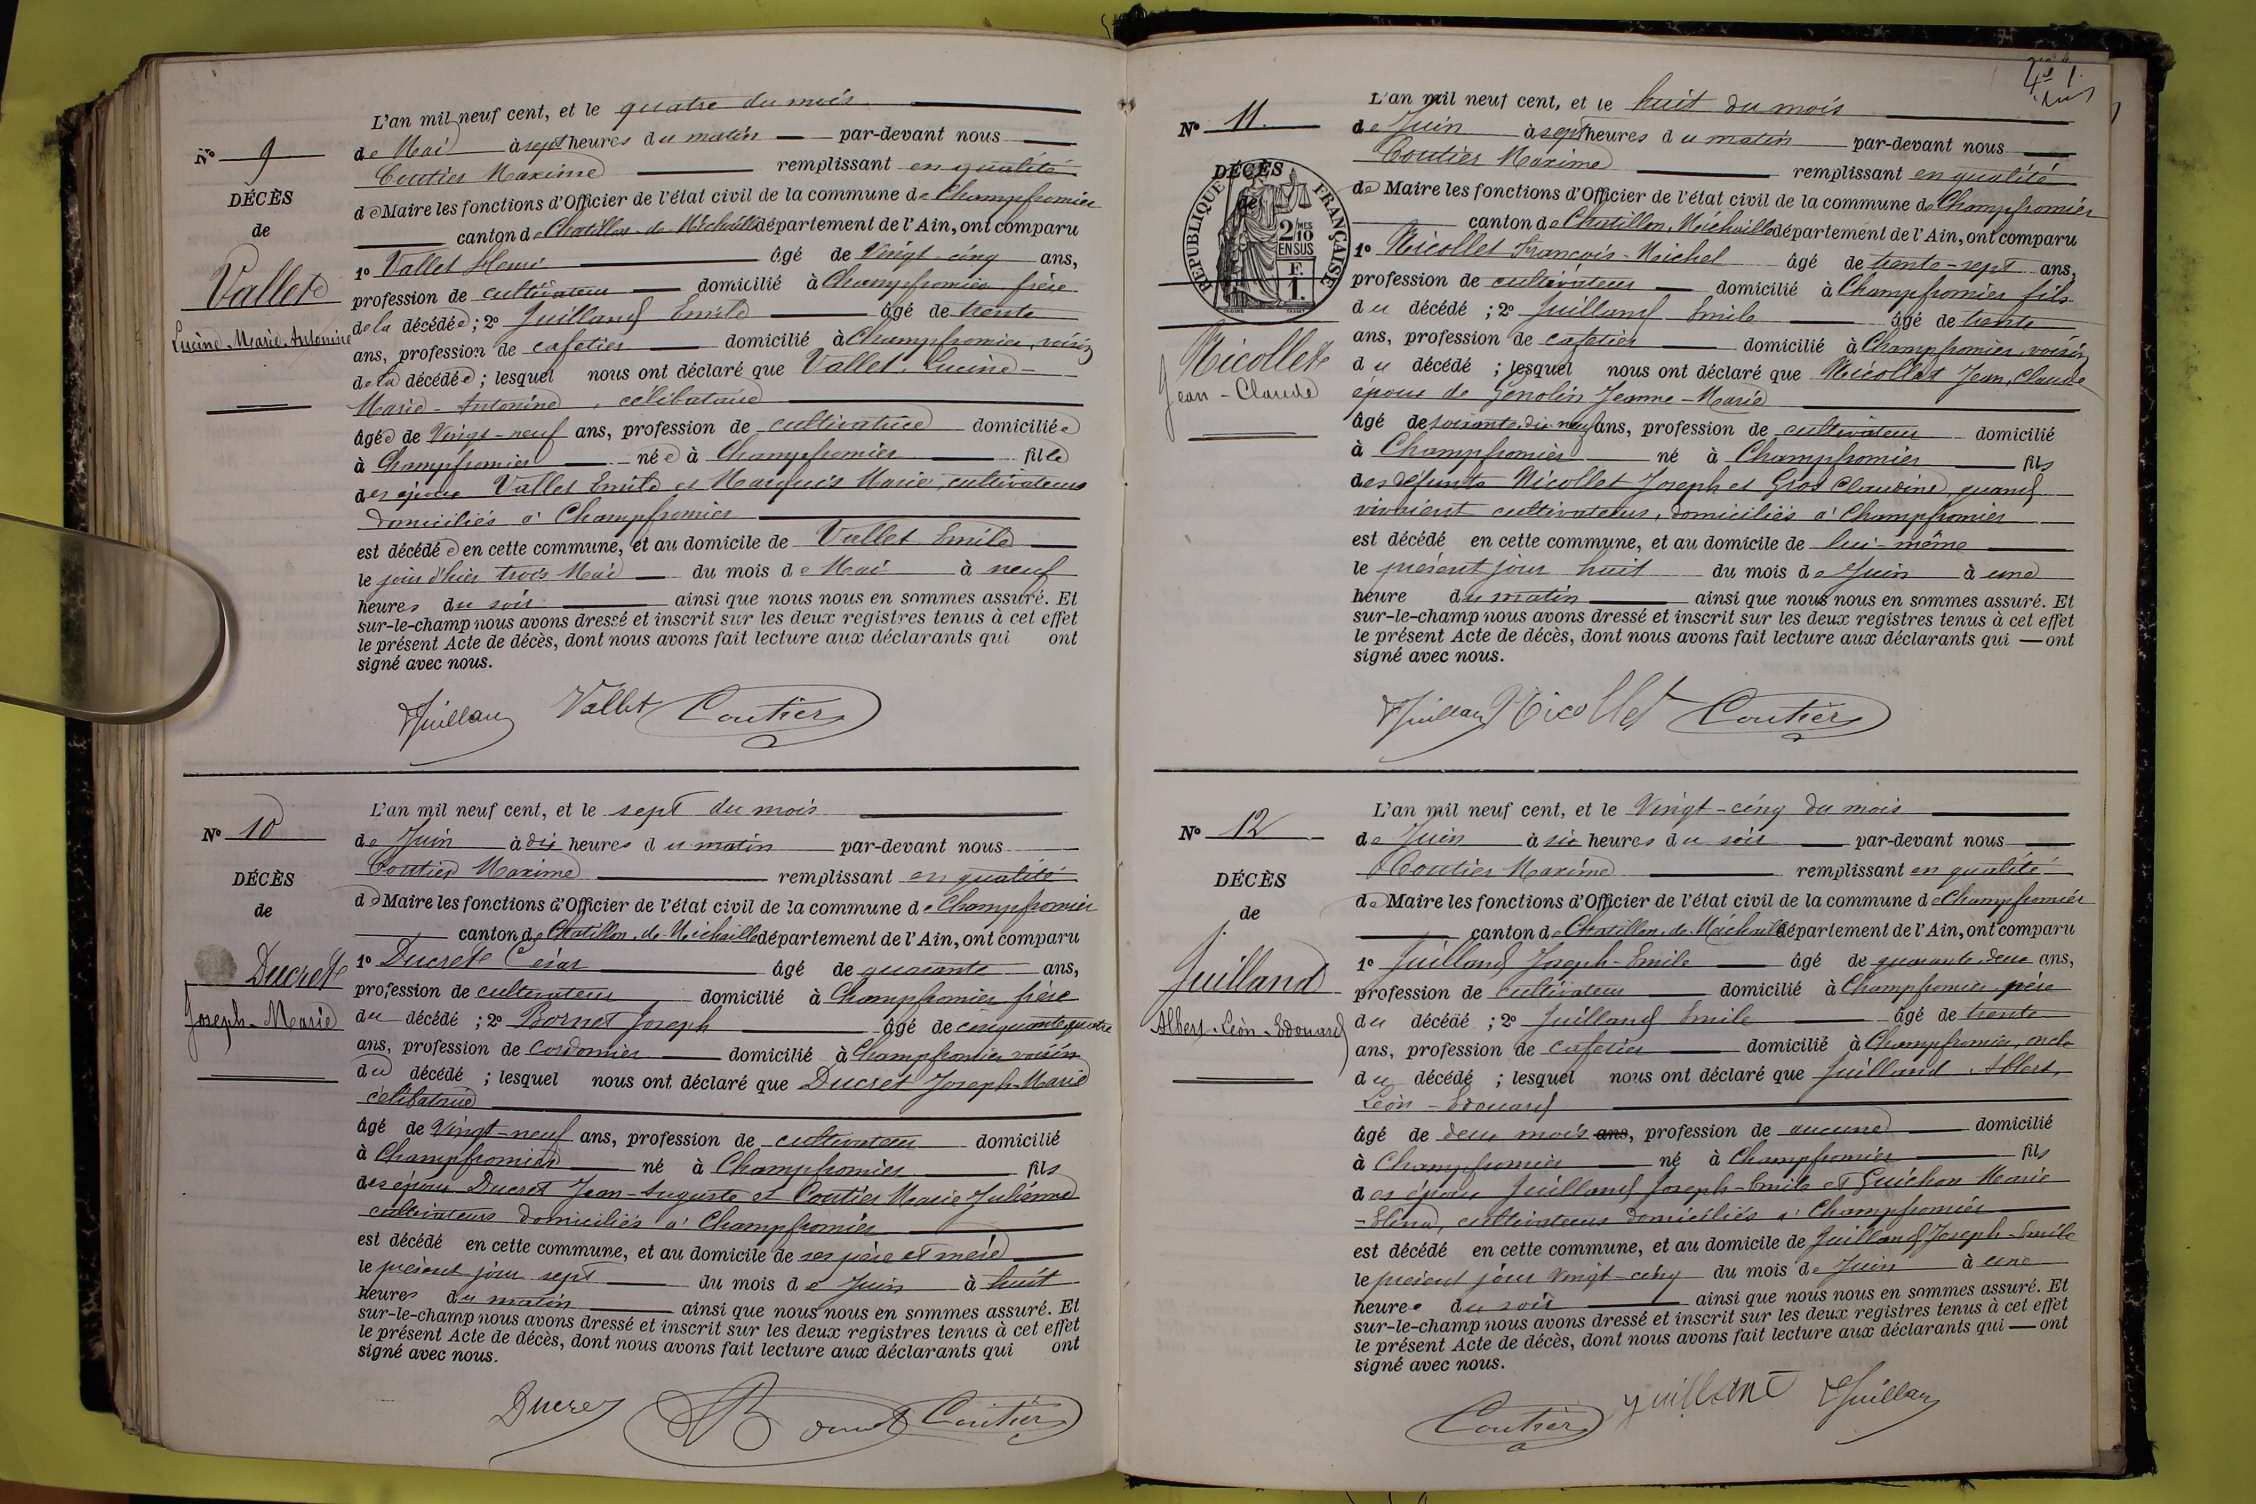 L'an mil neuf cent, et le quatre du mois
N° 9
de Mai à sept heures du matin par-devant nous
Coutier Maxime remplissant en qualité
DÉCÈS
de Maire les fonctions d'Officier de l'état civil de la commune de Champfromier
de
canton de Chatillon-de-Michaille département de l'Ain, ont comparu
Vallet
1° Vallet Henri âgé de Vingt-cinq ans,
profession de cultivateur domicilié à Champfromier frère
Lucine-Marie-Antonine
de la décédée ; 2° Juilland Emile âgé de trente
ans, profession de cafetier domicilié à Champfromier, voisin
de la décédée ; lesquel nous ont déclaré que Vallet Lucine-
Marie-Antonine, célibataire
âgée de Vingt-neuf ans, profession de cultivatrice domiciliée
à Champfromier née à Champfromier fille
des époux Vallet Emile et Marquis Marie, cultivateurs
domiciliés à Champfromier
est décédée en cette commune, et au domicile de Vallet Emile
le jour d'hier trois Mai du mois de Mai à neuf
heures du soir ainsi que nous nous en sommes assuré. Et
sur-le-champ nous avons dressé et inscrit sur les deux registres tenus à cet effet
le présent Acte de décès, dont nous avons fait lecture aux déclarants qui ont
signé avec nous.
Juilland Vallet Coutier
L'an mil neuf cent, et le sept du mois
N° 10
de Juin à dix heures du matin par-devant nous
Coutier Maxime remplissant en qualité
DÉCÈS
de Maire les fonctions d'Officier de l'état civil de la commune de Champfromier
de
canton de Chatillon-de-Michaille département de l'Ain, ont comparu
Ducret
1° Ducret César âgé de quarante ans,
profession de cultivateur domicilié à Champfromier frère
Joseph-Marie
du décédé ; 2° Bornet Joseph âgé de cinquante quatre
ans, profession de cordonnier domicilié à Champfromier voisin
du décédé ; lesquel nous ont déclaré que Ducret Joseph-Marie
célibataire
âgé de Vingt-neuf ans, profession de cultivateur domicilié
à Champfromier né à Champfromier fils
des époux Ducret Jean-Auguste et Coutier Marie Julienne
cultivateurs domiciliés à Champfromier
est décédé en cette commune, et au domicile de ses père et mère
le présent jour sept du mois de Juin à huit
heures du matin ainsi que nous nous en sommes assuré. Et
sur-le-champ nous avons dressé et inscrit sur les deux registres tenus à cet effet
le présent Acte de décès, dont nous avons fait lecture aux déclarants qui ont
signé avec nous.
Ducret Coutier
L'an mil neuf cent, et le huit du mois
N° 11
de Juin à sept heures du matin par-devant nous
Coutier Maxime remplissant en qualité
DÉCÈS
de
RÉPUBLIQUE FRANÇAISE
2 MES 10 EN SUS
F. 1.
de Maire les fonctions d'Officier de l'état civil de la commune de Champfromier
canton de Chatillon, Michaille département de l'Ain, ont comparu
1° Nicollet François-Michel âgé de trente-sept ans,
profession de cultivateur domicilié à Champfromier fils
du décédé ; 2° Juilland Emile âgé de trente
Nicollet
ans, profession de cafetier domicilié à Champfromier, voisin
Jean-Claude
du décédé ; lesquel nous ont déclaré que Nicollet Jean, Claude
époux de Genolin Jeanne-Marie
âgé de soixante-dix-neuf ans, profession de cultivateur domicilié
à Champfromier né à Champfromier fils
des défunts Nicollet Joseph et Gros Claudine, quand
vivaient cultivateurs, domiciliés à Champfromier
est décédé en cette commune, et au domicile de lui-même
le présent jour huit du mois de Juin à une
heure du matin ainsi que nous nous en sommes assuré. Et
sur-le-champ nous avons dressé et inscrit sur les deux registres tenus à cet effet
le présent Acte de décès, dont nous avons fait lecture aux déclarants qui ont
signé avec nous.
Juilland Nicollet Coutier
L'an mil neuf cent, et le Vingt-cinq du mois
N° 12
de Juin à six heures du soir par-devant nous
Coutier Maxime remplissant en qualité
DÉCÈS
de Maire les fonctions d'Officier de l'état civil de la commune de Champfromier
de
canton de Chatillon-de-Michaille département de l'Ain, ont comparu
Juilland
1° Juilland Joseph-Emile âgé de quarante deux ans,
profession de cultivateur domicilié à Champfromier père
Albert-Léon-Edouard
du décédé ; 2° Juilland Emile âgé de trente
ans, profession de cafetier domicilié à Champfromier, oncle
du décédé ; lesquel nous ont déclaré que Juilland Albert,
Léon-Edouard
âgé de deux mois ans, profession de aucune domicilié
à Champfromier né à Champfromier fils
des époux Juilland Joseph-Emile et Guichon Marie
-Eléna, cultivateurs domiciliés à Champfromier
est décédé en cette commune, et au domicile de Juilland Joseph-Emile
le présent jour vingt-cinq du mois de Juin à une
heure du soir ainsi que nous nous en sommes assuré. Et
sur-le-champ nous avons dressé et inscrit sur les deux registres tenus à cet effet
le présent Acte de décès, dont nous avons fait lecture aux déclarants qui ont
signé avec nous.
Coutier Juilland Juilland